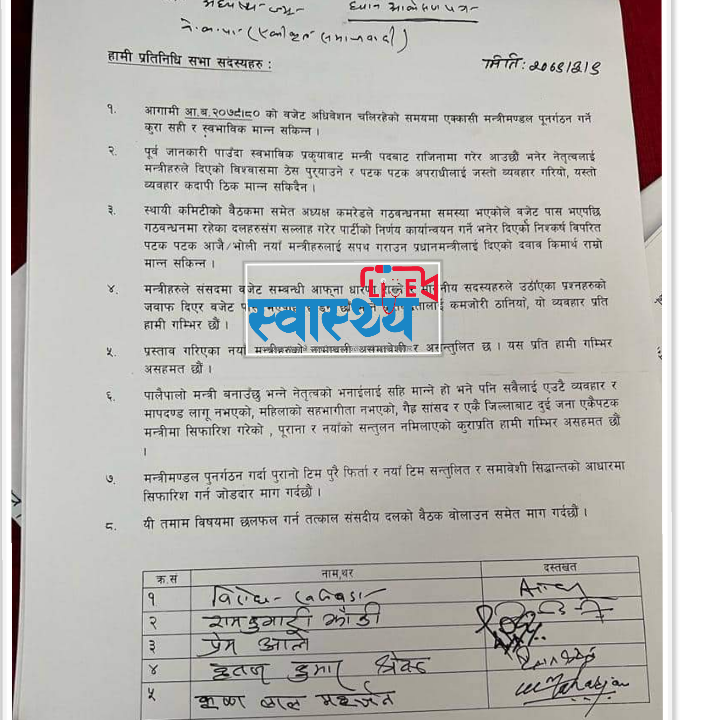 अध्यक्ष ज्यू
ध्यान आकर्षण पत्र
ने.क.पा (एकीकृत समाजवादी)
हामी प्रतिनिधि सभा सदस्यहरु :
मिति:
१. आगामी आ.ब.२०७९।८० को बजेट अधिवेशन चलिरहेको समयमा एक्कासी मन्त्रीमण्डल पूनर्गठन गर्ने
कुरा सही र स्वभाविक मान्न सकिन्न ।
२. पूर्व जानकारी पाउँदा स्वभाविक प्रकृयाबाट मन्त्री पदबाट राजिनामा गरेर आउछौं भनेर नेतृत्वलाई
मन्त्रीहरुले दिएको विश्वासमा ठेस पुर्‍याउने र पटक पटक अपराधीलाई जस्तो व्यवहार गरियो, यस्तो
व्यवहार कदापी ठिक मान्न सकिदैन ।
३. स्थायी कमिटीको बैठकमा समेत अध्यक्ष कमरेडले गठबन्धनमा समस्या भएकोले बजेट पास भएपछि
गठबन्धनमा रहेका दलहरुसंग सल्लाह गरेर पार्टीको निर्णय कार्यान्वयन गर्ने भनेर दिएको निश्कर्ष विपरित
पटक पटक आजै/भोली नयाँ मन्त्रीहरुलाई सपथ गराउन प्रधानमन्त्रीलाई दिएको दवाव किमार्थ राम्रो
मान्न सकिन्न ।
४. मन्त्रीहरुले संसदमा बजेट सम्बन्धी आफ्ना धारणा राख्ने र माननीय सदस्यहरुले उठाएका प्रश्नहरुको
जवाफ दिएर बजेट कमजोरी ठानियो, यो व्यवहार प्रति
हामी गम्भिर छौं ।
LIVE
स्वास्थ्य
५. प्रस्ताव गरिएका नयाँ मन्त्रीहरुको नामावली असमावेशी र असन्तुलित छ । यस प्रति हामी गम्भिर
असहमत छौं ।
६. पालैपालो मन्त्री बनाउँछु भन्ने नेतृत्वको भनाईलाई सहि मान्ने हो भने पनि सबैलाई एउटै व्यवहार र
मापदण्ड लागू नभएको, महिलाको सहभागीता नभएको, गैह्र सांसद र एकै जिल्लाबाट दुई जना एकैपटक
मन्त्रीमा सिफारिश गरेको , पूराना र नयाँको सन्तुलन नमिलाएको कुराप्रति हामी गम्भिर असहमत छौं
।
७. मन्त्रीमण्डल पुनर्गठन गर्दा पुरानो टिम पुरै फिर्ता र नयाँ टिम सन्तुलित र समावेशी सिद्धान्तको आधारमा
सिफारिश गर्न जोडदार माग गर्दछौं ।
८. यी तमाम विषयमा छलफल गर्न तत्काल संसदीय दलको बैठक बोलाउन समेत माग गर्दछौं ।
क्र.सं नाम,थर दस्तखत
१
२ रामकुमारी झाँक्री
३ प्रेम आले
४ कुमार श्रेष्ठ
५ कृष्ण लाल महर्जन